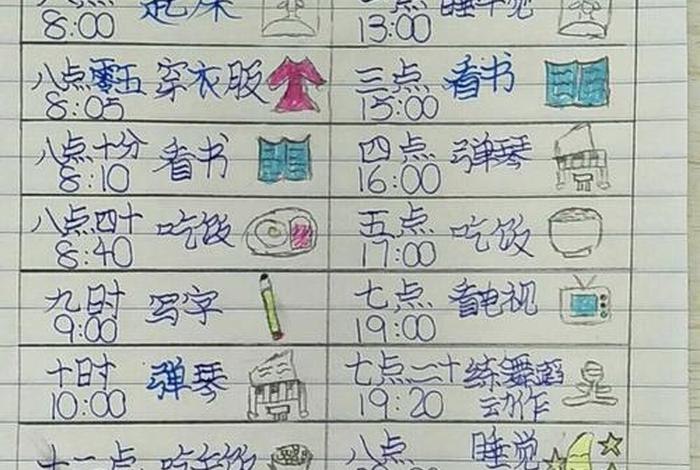 8:00 起床
八点零五 穿衣服
8:05
八点十分 看书
8:10
八点四十 吃饭
8:40
九时 写字
9:00
十时 弹琴
10:00
十二点 吃午饭
点 睡午觉
13:00
三点 看书
15:00
四点 弹琴
16:00
五点 吃饭
17:00
七点 看电视
19:00
七点二十 练舞蹈
19:20 动作
八点 睡觉